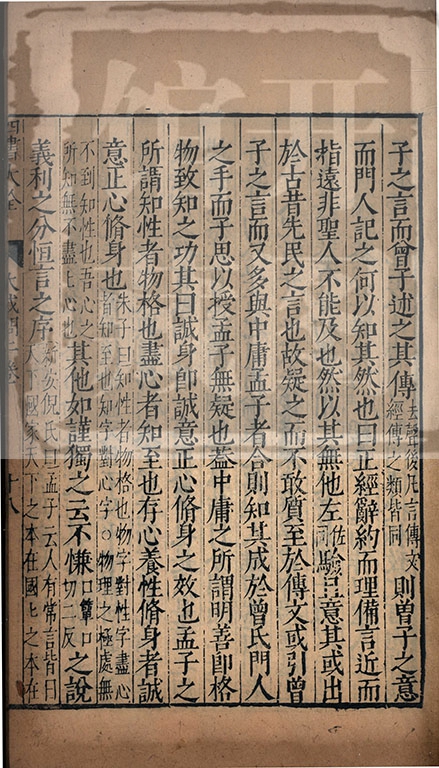 子之言而曾子述之其傳去聲後凡言傳文經傳之類皆同則曾子之意
而門人記之何以知其然也曰正經辭約而理備言近而
指遠非聖人不能及也然以其無他左佐同驗且意其或出
於古昔先民之言也故疑之而不敢質至於傳文或引曾
子之言而又多與中庸孟子者合則知其成於曾氏門人
之手而子思以授孟子無疑也蓋中庸之所謂明善即格
物致知之功其曰誠身即誠意正心脩身之效也孟子之
所謂知性者物格也盡心者知至也存心養性脩身者誠
意正心脩身也朱子曰知性者物格也物字對性字盡心者知至也知字對心字○物理之極處無
不到知性也吾心之所知無不盡盡心也其他如謹獨之云不慊口簟口切二反之說
義利之分恒言之序新安倪氏曰孟子云人有常言皆曰天下國家天下之本在國匕之本在
四書大全
大或問二卷
十八